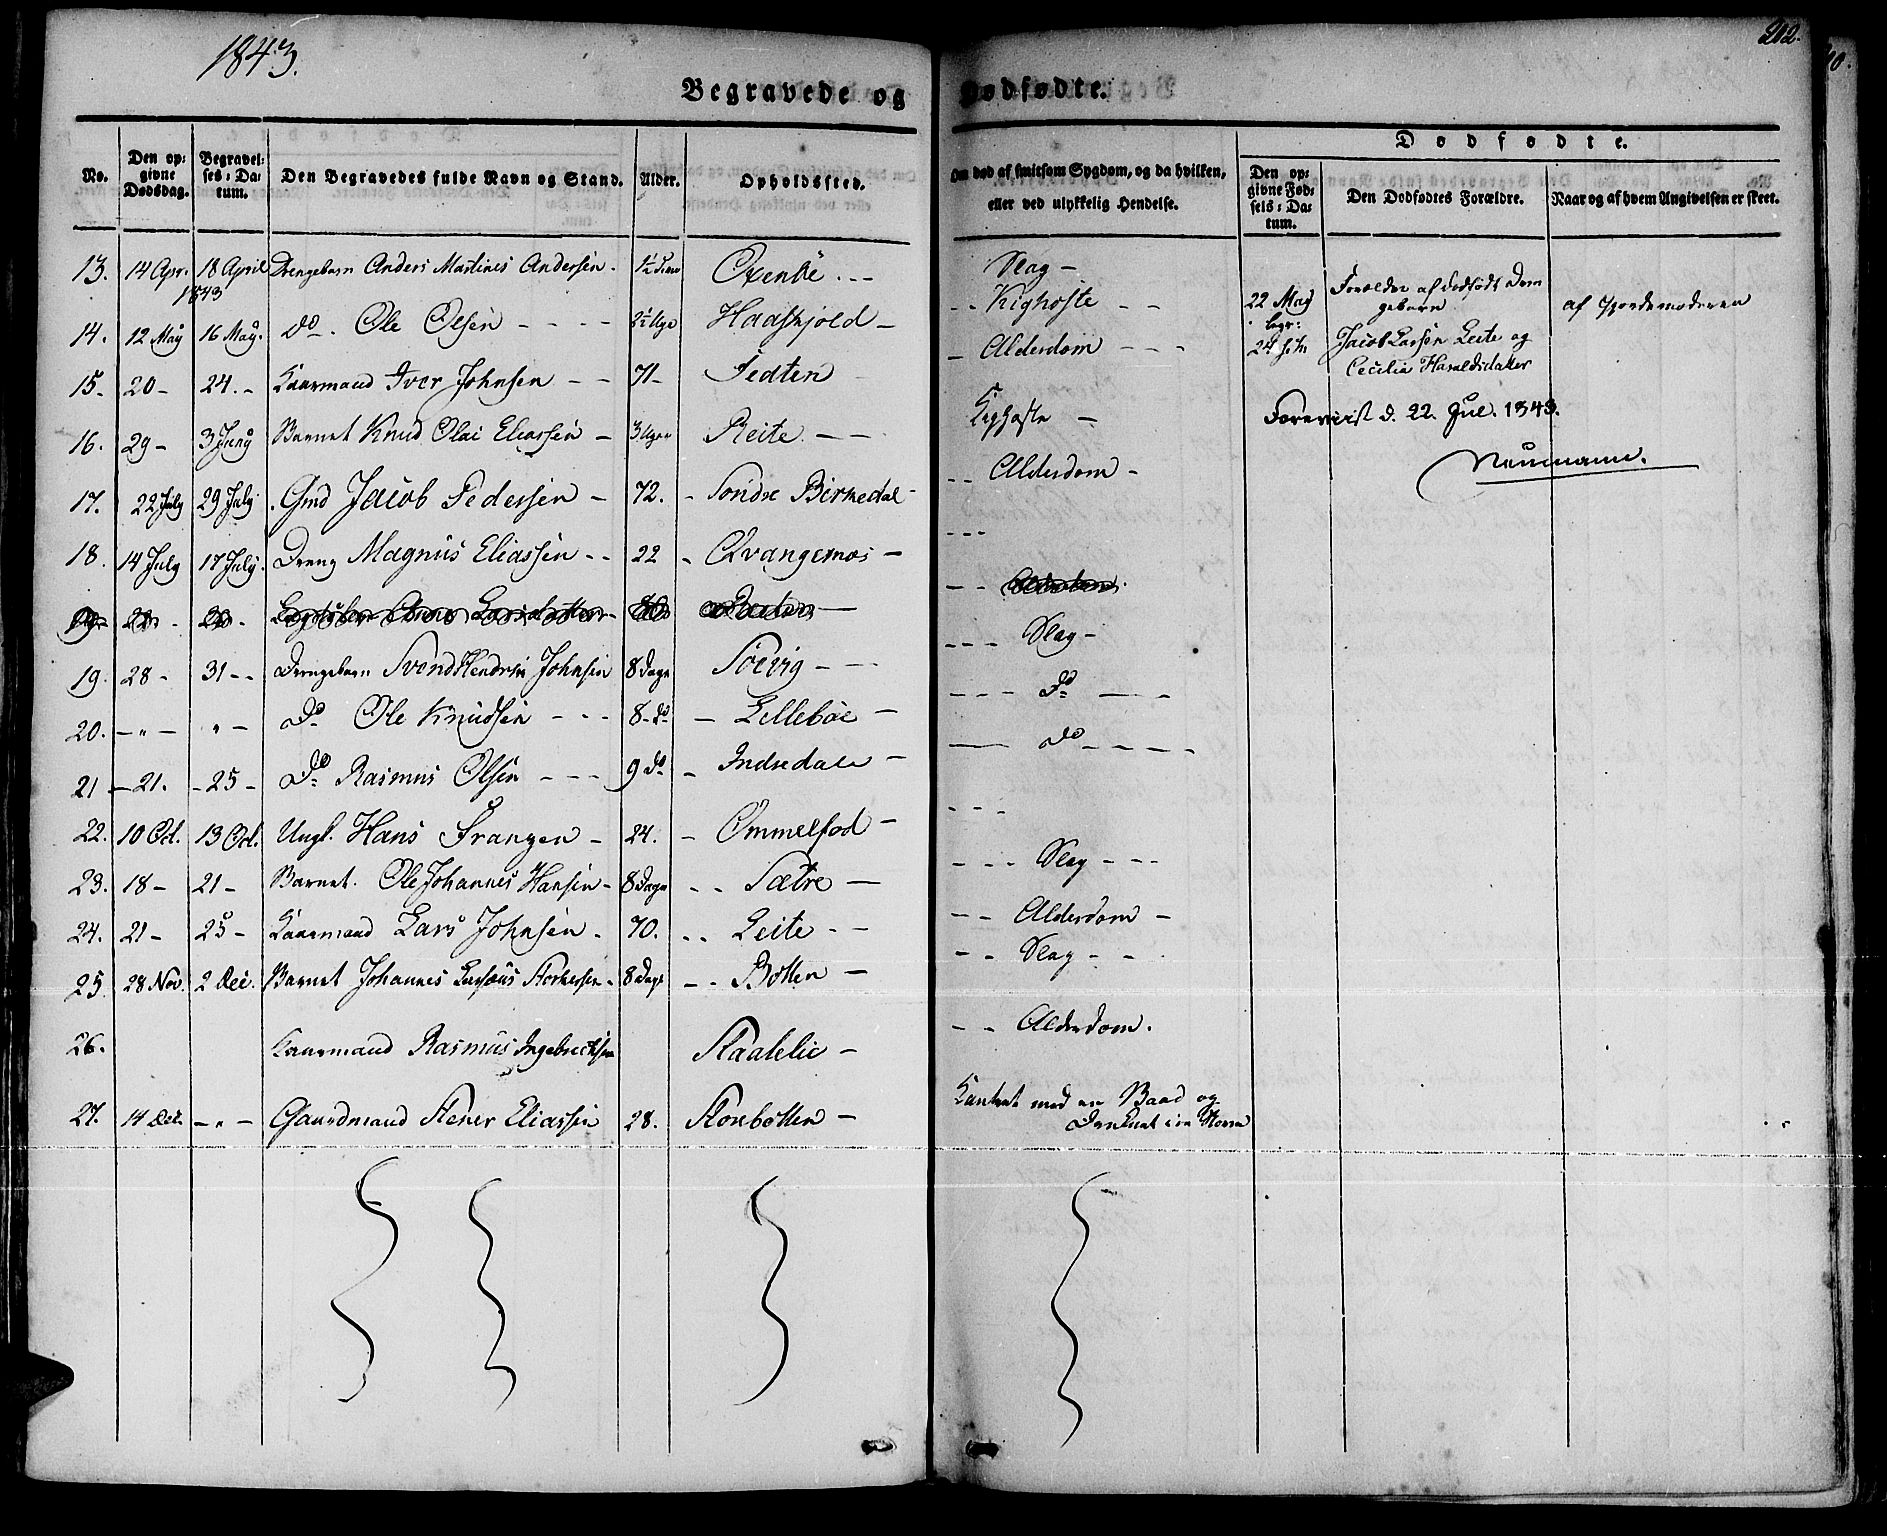 1843.
212.
Begravede og Dødfødte.
No. Den opgivne Dødsdag. Begravelses-Datum. Den Begravedes fulde Navn og Stand. Alder. Opholdssted. Om død af smitsom Sygdom, og da hvilken, eller ved ulykkelig Hendelse.
Dødfødte.
Den opgivne Fødsels-Datum. Den Dødfødtes Forældre. Naar og af hvem Angivelsen er skeet.
13. 14 Apr. 18 April 1843 Drengebarn Anders Martines Andersen. Oxenbe... Slag -
14. 12 May 16 May. do. Ole Olsen - - - - 2½ Uge Haaskjold - - - Kighoste - -
15. 20 - 24. - Kaarmand Iver Johnsen - - 71 - Tedten - Alderdom - - -
16. 29 - 3 Juny Barnet Knud Olai Eliassen - 3 Uger Reite. - - Kighoste -
17. 22 July 29 July. Gmd Jacob Pedersen - 72. - Søndre Birkedal - - - Alderdom -
18. 14 July 17 July. Dreng Magnus Eliassen - - 22 - Qvangernes - - - -
19. 28 - 31 - - Drengebarn Svend Hendrik Johnsen 8 Dage Søevig - - - - - - Slag -
20. - " - " - Do Ole Knudsen - - - 8 - do - Lillebøe - - - - do - -
21 - 21. - 25 - Do Rasmus Olsen - - - 9 do - Indredale - - do - - - -
22. 10 Oct. 13 Oct. Ungk. Hans Frangen - 24. - Ommelfod - - - -
23. 18 - 21 - Barnet. Ole Johannes Hansen - 8 Dage - - Sætre - - - - Slag - - -
24. 21 - 25 - Kaarmand Lars Johnsen - 70. - - Leite - - - - Alderdom -
25. 28 Nov. 2 Dec. Barnet Johannes Storkersen - 8 Dage - - Botten - - - Slag - -
26. Kaarmand Rasmus Ingebrectsen Staalelie - - - Alderdom.
27. 14 Dec. - " - Gaardmand Stener Eliassen 28. Storebotten - Kantret med en Baad og
Druknet i en Storm
22 May
begr:
24
Forælder af dødfødt Drengebarn
Jacob Larsen Leite og
Cecilia Haraldsdatter
af Jordemoderen
Foreviist d. 22. Jul. 1843.
Neumann.